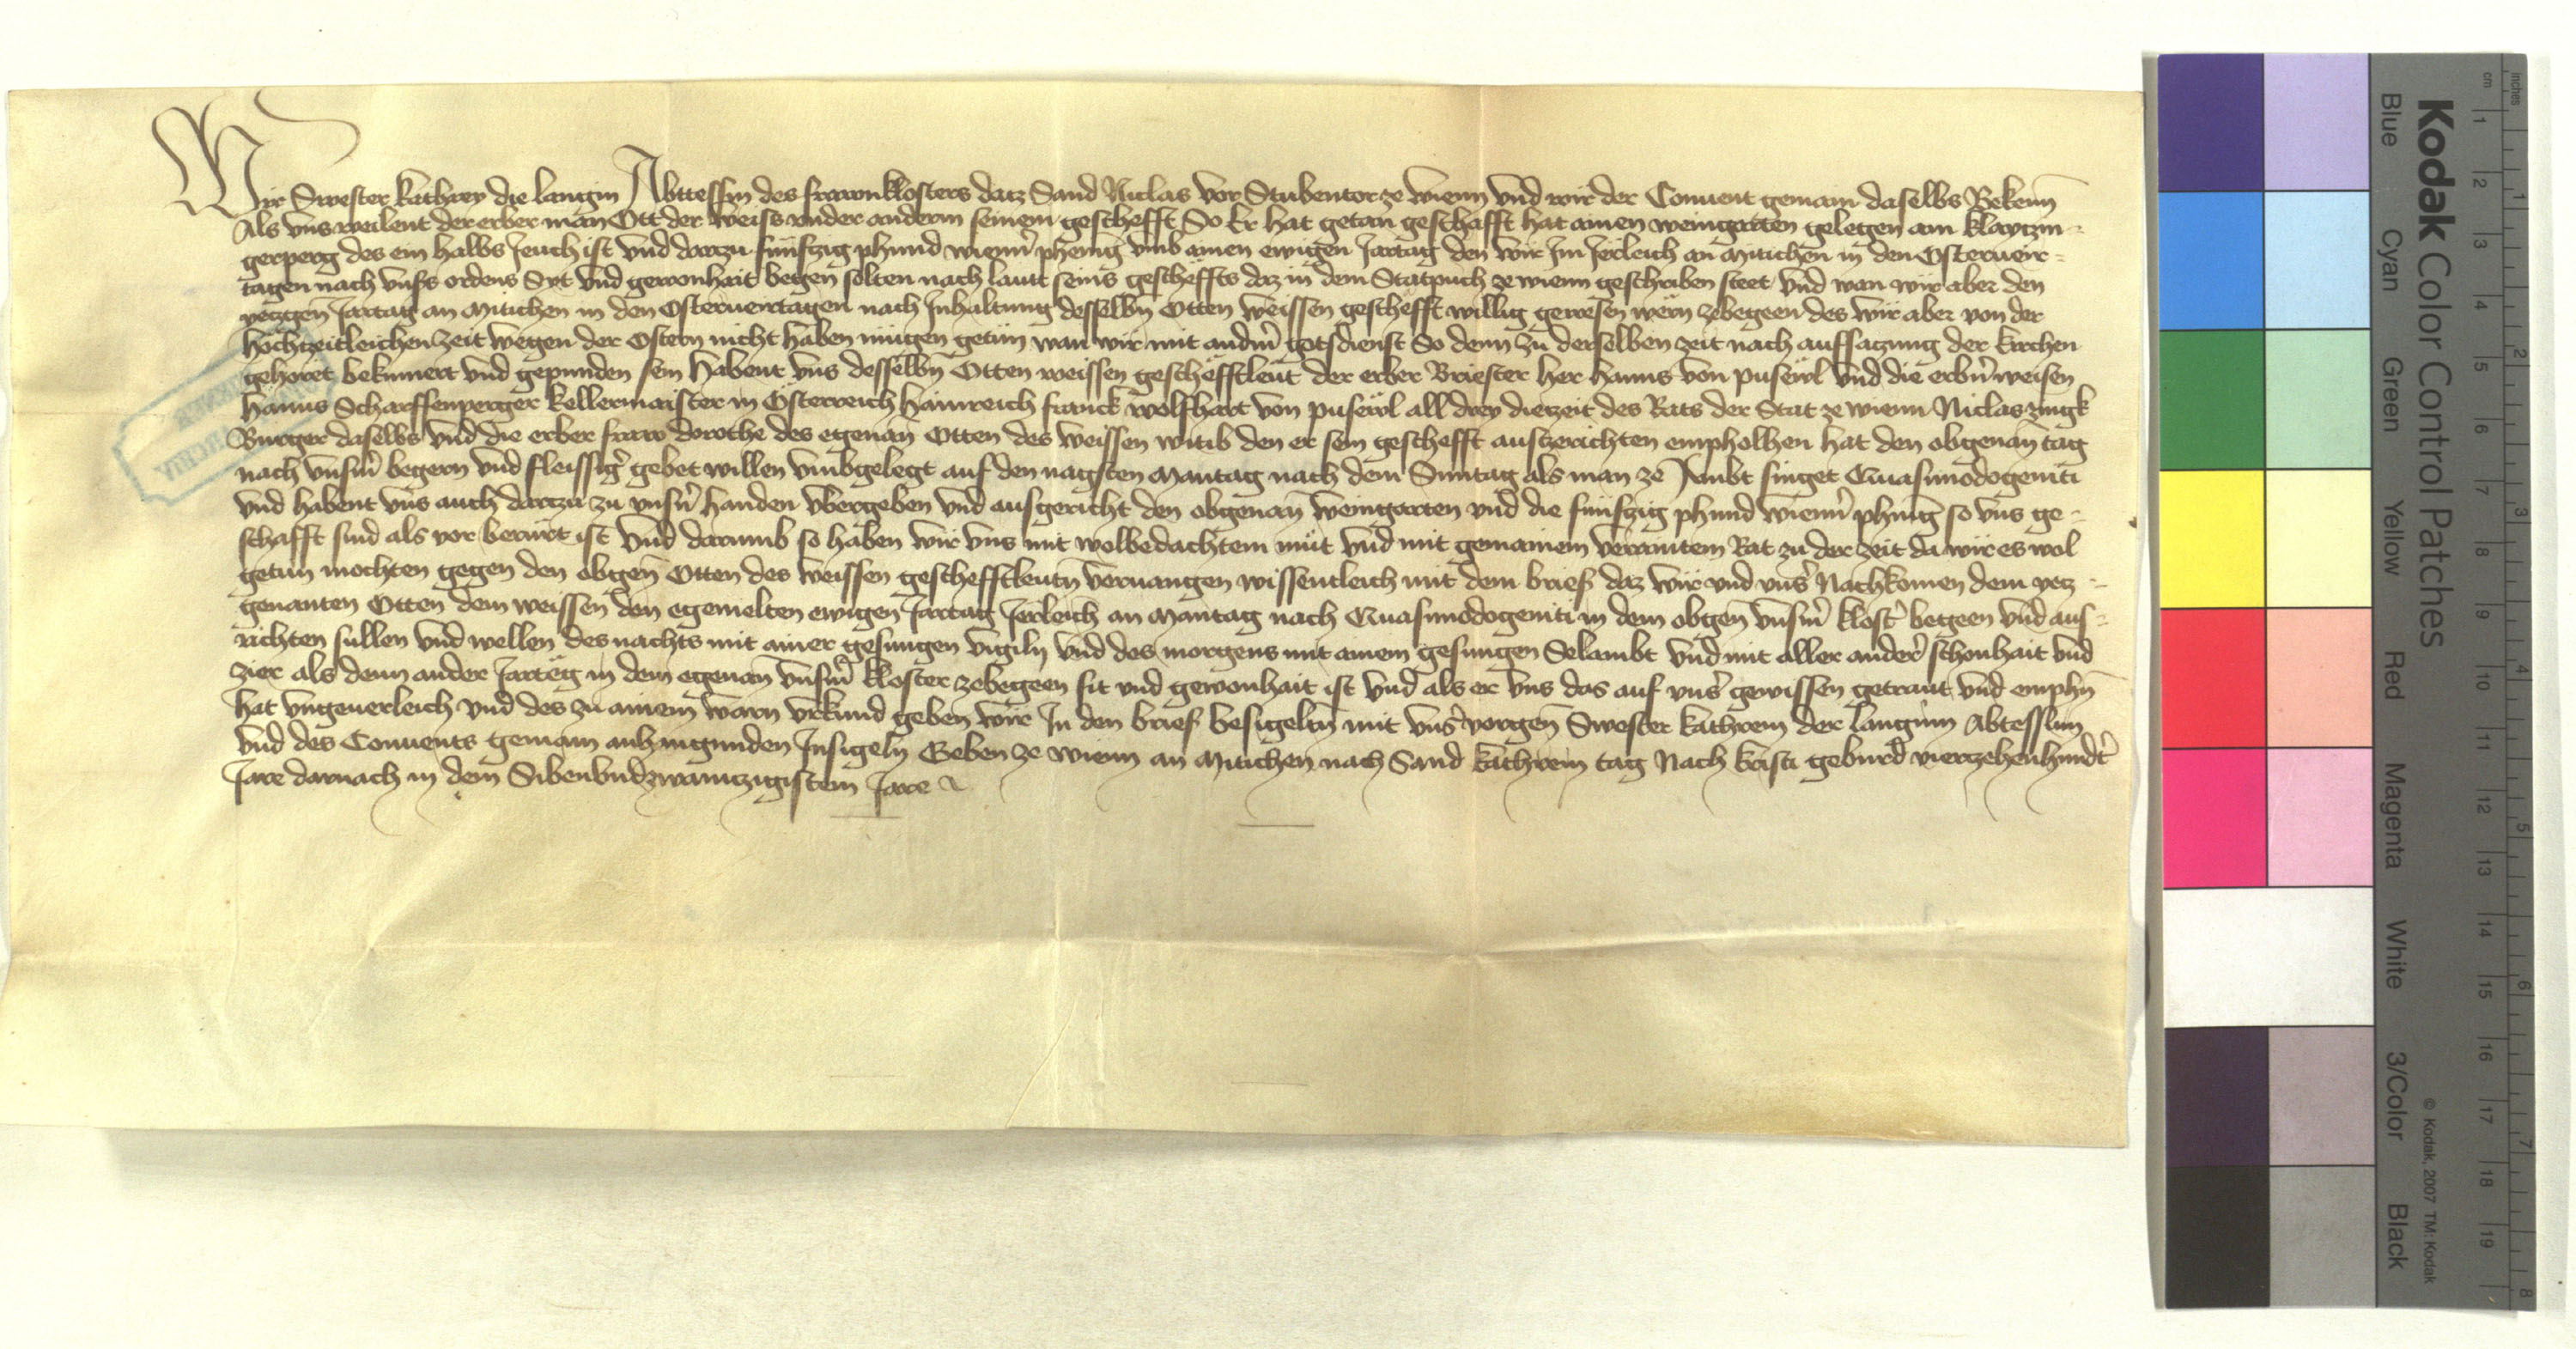 Wir Swester kathrey die langin Abttessin des frawnklosters datz Sand Niclas vor Stubentor ze wienn vnd wir der Conuent gemain daselbs Bekenn̄
Als vns weilent der erber man Ott der weiss vnder anderm seinem geschefft So Er hat getan geschafft hat ainen weingarten gelegen am
gerperg des ein halbs Jeuch ist vnd darzu fünfzig phund wienn̄ phenig vmb ainen ewigen Jartag den wir Im Jerleich an Mitichen in den Osterueir-
tagen nach vnsꝛs ordens Syt vnd gewonhait begen solten nach laut seins gescheffts daz in dem Statpuch ze wienn geschriben steet vnd wan wir aber den
yeczgen̄ Jartag an Mitichen in den Osterueirtagen nach Inhaltung desselbn̄ Otten weissen geschefft willig gewesen wern zebegeen des wir aber von der
hochzeitleichen zeit wegen der Ostern nicht haben mügen getun wan wir mit anderm̄ gotsdienst So denn zu derselben zeit nach aufsatzung der kirchen
gehoret bekumert vnd gepunden sein Habent vns desselbn̄ Otten weissen gescheftleut der erber Briester her Hanns von pusewl vnd die erbn̄ weisen
Hanns Scharffenperger kellermaister in Österreich Hainreich franck wolfhart von pusewl all drey dieczeit des Rats der Stat ze wienn Niclas
Burger daselbs vnd die erber fraw dorothe des egenan̄ Otten des weissen witib den er sein geschefft auszerichten empholhen hat den obgenan̄ tag
nach vnserm̄ begern vnd fleissigr̄ gebet willen vmbgelegt auf den nagsten Mantag nach dem Sunntag als man ze Ambt singet Quasimodogeniti
vnd habent vns auch darzu zu vnsrn̄ handen vbergeben vnd ausgericht den obgenan̄ weingarten vnd die fünfzig phund wienn̄ phenig so vns ge-
schafft sind als vor berürt ist vnd darumb so haben wir vns mit wolbedachtem müt vnd mit gemainem veraintem Rat zu der zeit da wir es wol
getun mochten gegen den obgen̄ Otten des weissen gescheftleutn̄ veruangen wissentleich mit dem brief daz wir vnd vnsr̄ Nachkomen dem yetz-
genanten Otten dem weissen den egemelten ewigen Jartag Jerleich an Mantag nach Quasimodogeniti in dem obgen̄ vnserm̄ klostr̄ begeen vnd aus-
richten sullen vnd wellen des nachts mit ainer gesungen vigilij vnd des morgens mit ainem gesungen Selambt vnd mit aller anderr̄ schonhait vnd
zier als denn ander Jarteg in dem egenan̄ vnserm̄ kloster zebegeen sit vnd gewonhait ist vnd als er vns das auf vnsr̄ gewissen getraut vnd emphn̄
hat vngeuerleich vnd des zu ainem warn vrkund geben wir In den brief besigeltn̄ mit vnsr̄ vorgen̄ Swester kathrein der Langinn Abtessinn
vnd des Conuents gemain anhangunden Insigeln̄ Geben ze wienn an Mitichen nach Sand kathrein tag Nach kristi geburd̄ vierzehenhundert̄
Jare darnach in dem Sibenvndzwaintzigistem Jare
Kodak Color Control Patches
Blue Cyan Green Yellow Red Magenta White 3/Color Black
© Kodak, 2007 TM: Kodak
cm 1 2 3 4 5 6 7 8 9 10 11 12 13 14 15 16 17 18 19
inches 1 2 3 4 5 6 7 8